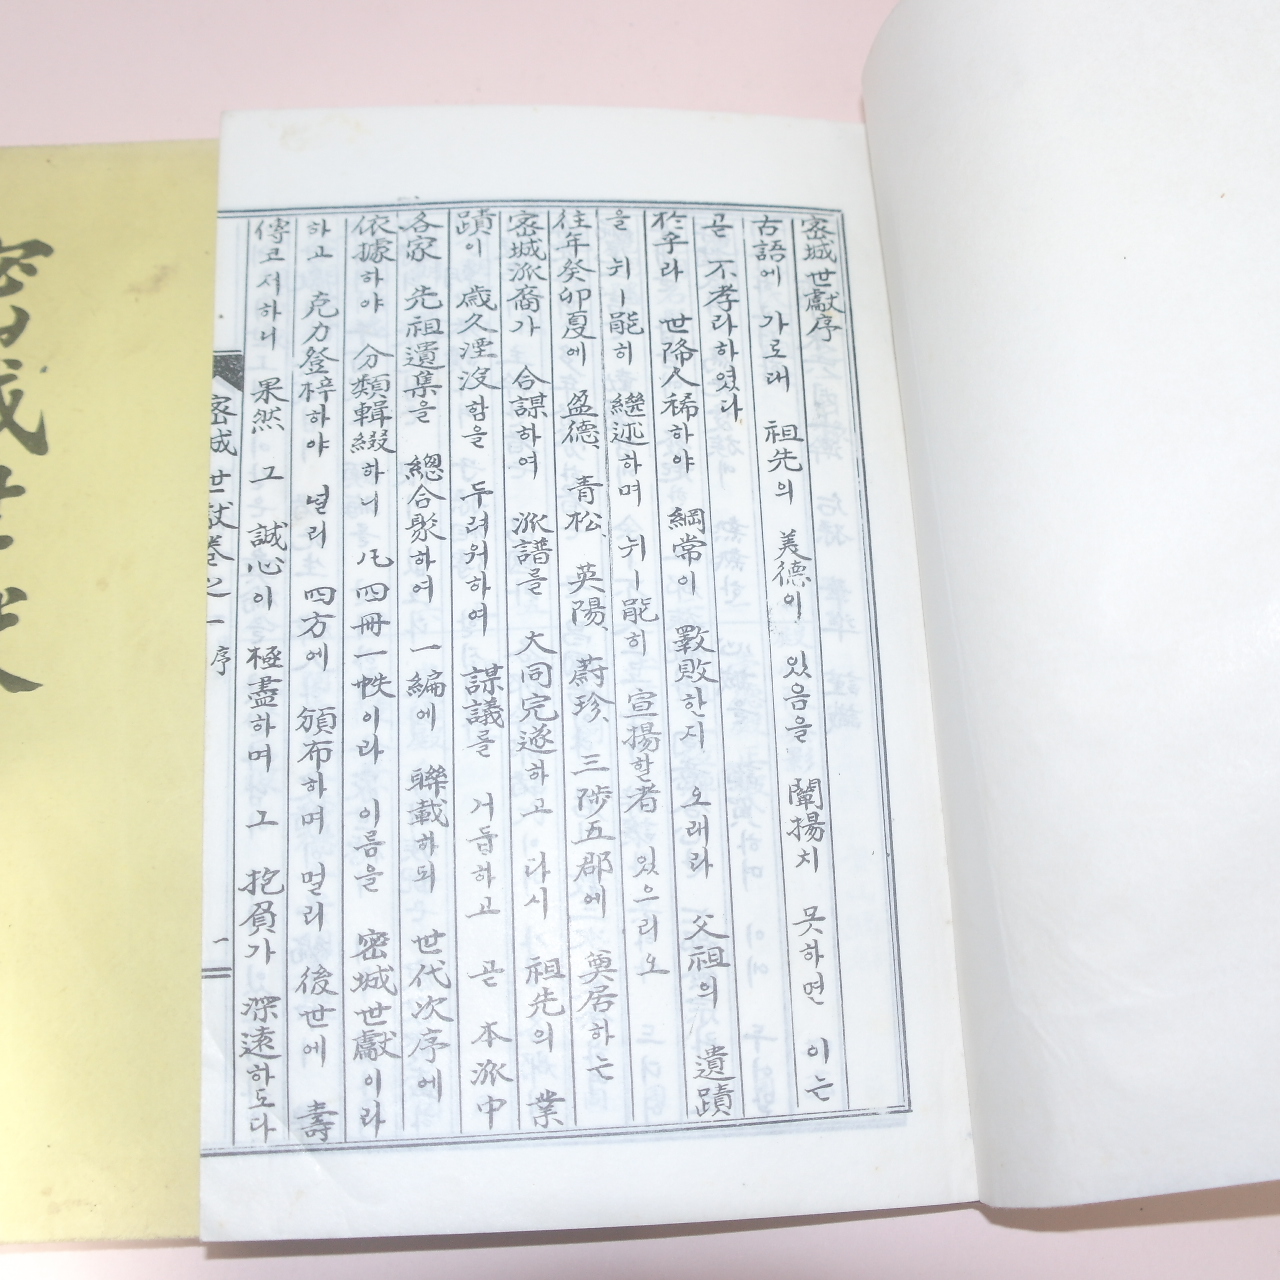 密城世獻序
古語에 가로대 祖先의 美德이 있음을 闡揚치 못하면 이는
곧 不孝라하였다
於乎라 世降人稀하야 綱常이 斁敗한지 오래라 父祖의 遺蹟
을 뉘ㅣ能히 繼述하며 뉘ㅣ能히 宣揚할者 있으리오
往年癸卯夏에 盈德、青松、英陽、蔚珍、三陟五郡에 奠居하는
密城派裔가 合謀하여 派譜를 大同完遂하고 이다시 祖先의 業
蹟이 歲久湮沒함을 두려워하여 謀議를 거듭하고 곧 本派中
各家 先祖遺集을 總合聚하여 一編에 聯載하되 世代次序에
依據하야 分類輯綴하니 凡四冊一帙이라 이름을 密城世獻이라
하고 克力登梓하야 널리 四方에 頒布하며 멀리 後世에 壽
傳코저하니 果然 그 誠心이 極盡하며 그 抱負가 深遠하도다
密城世獻卷之一 序 一
密城世